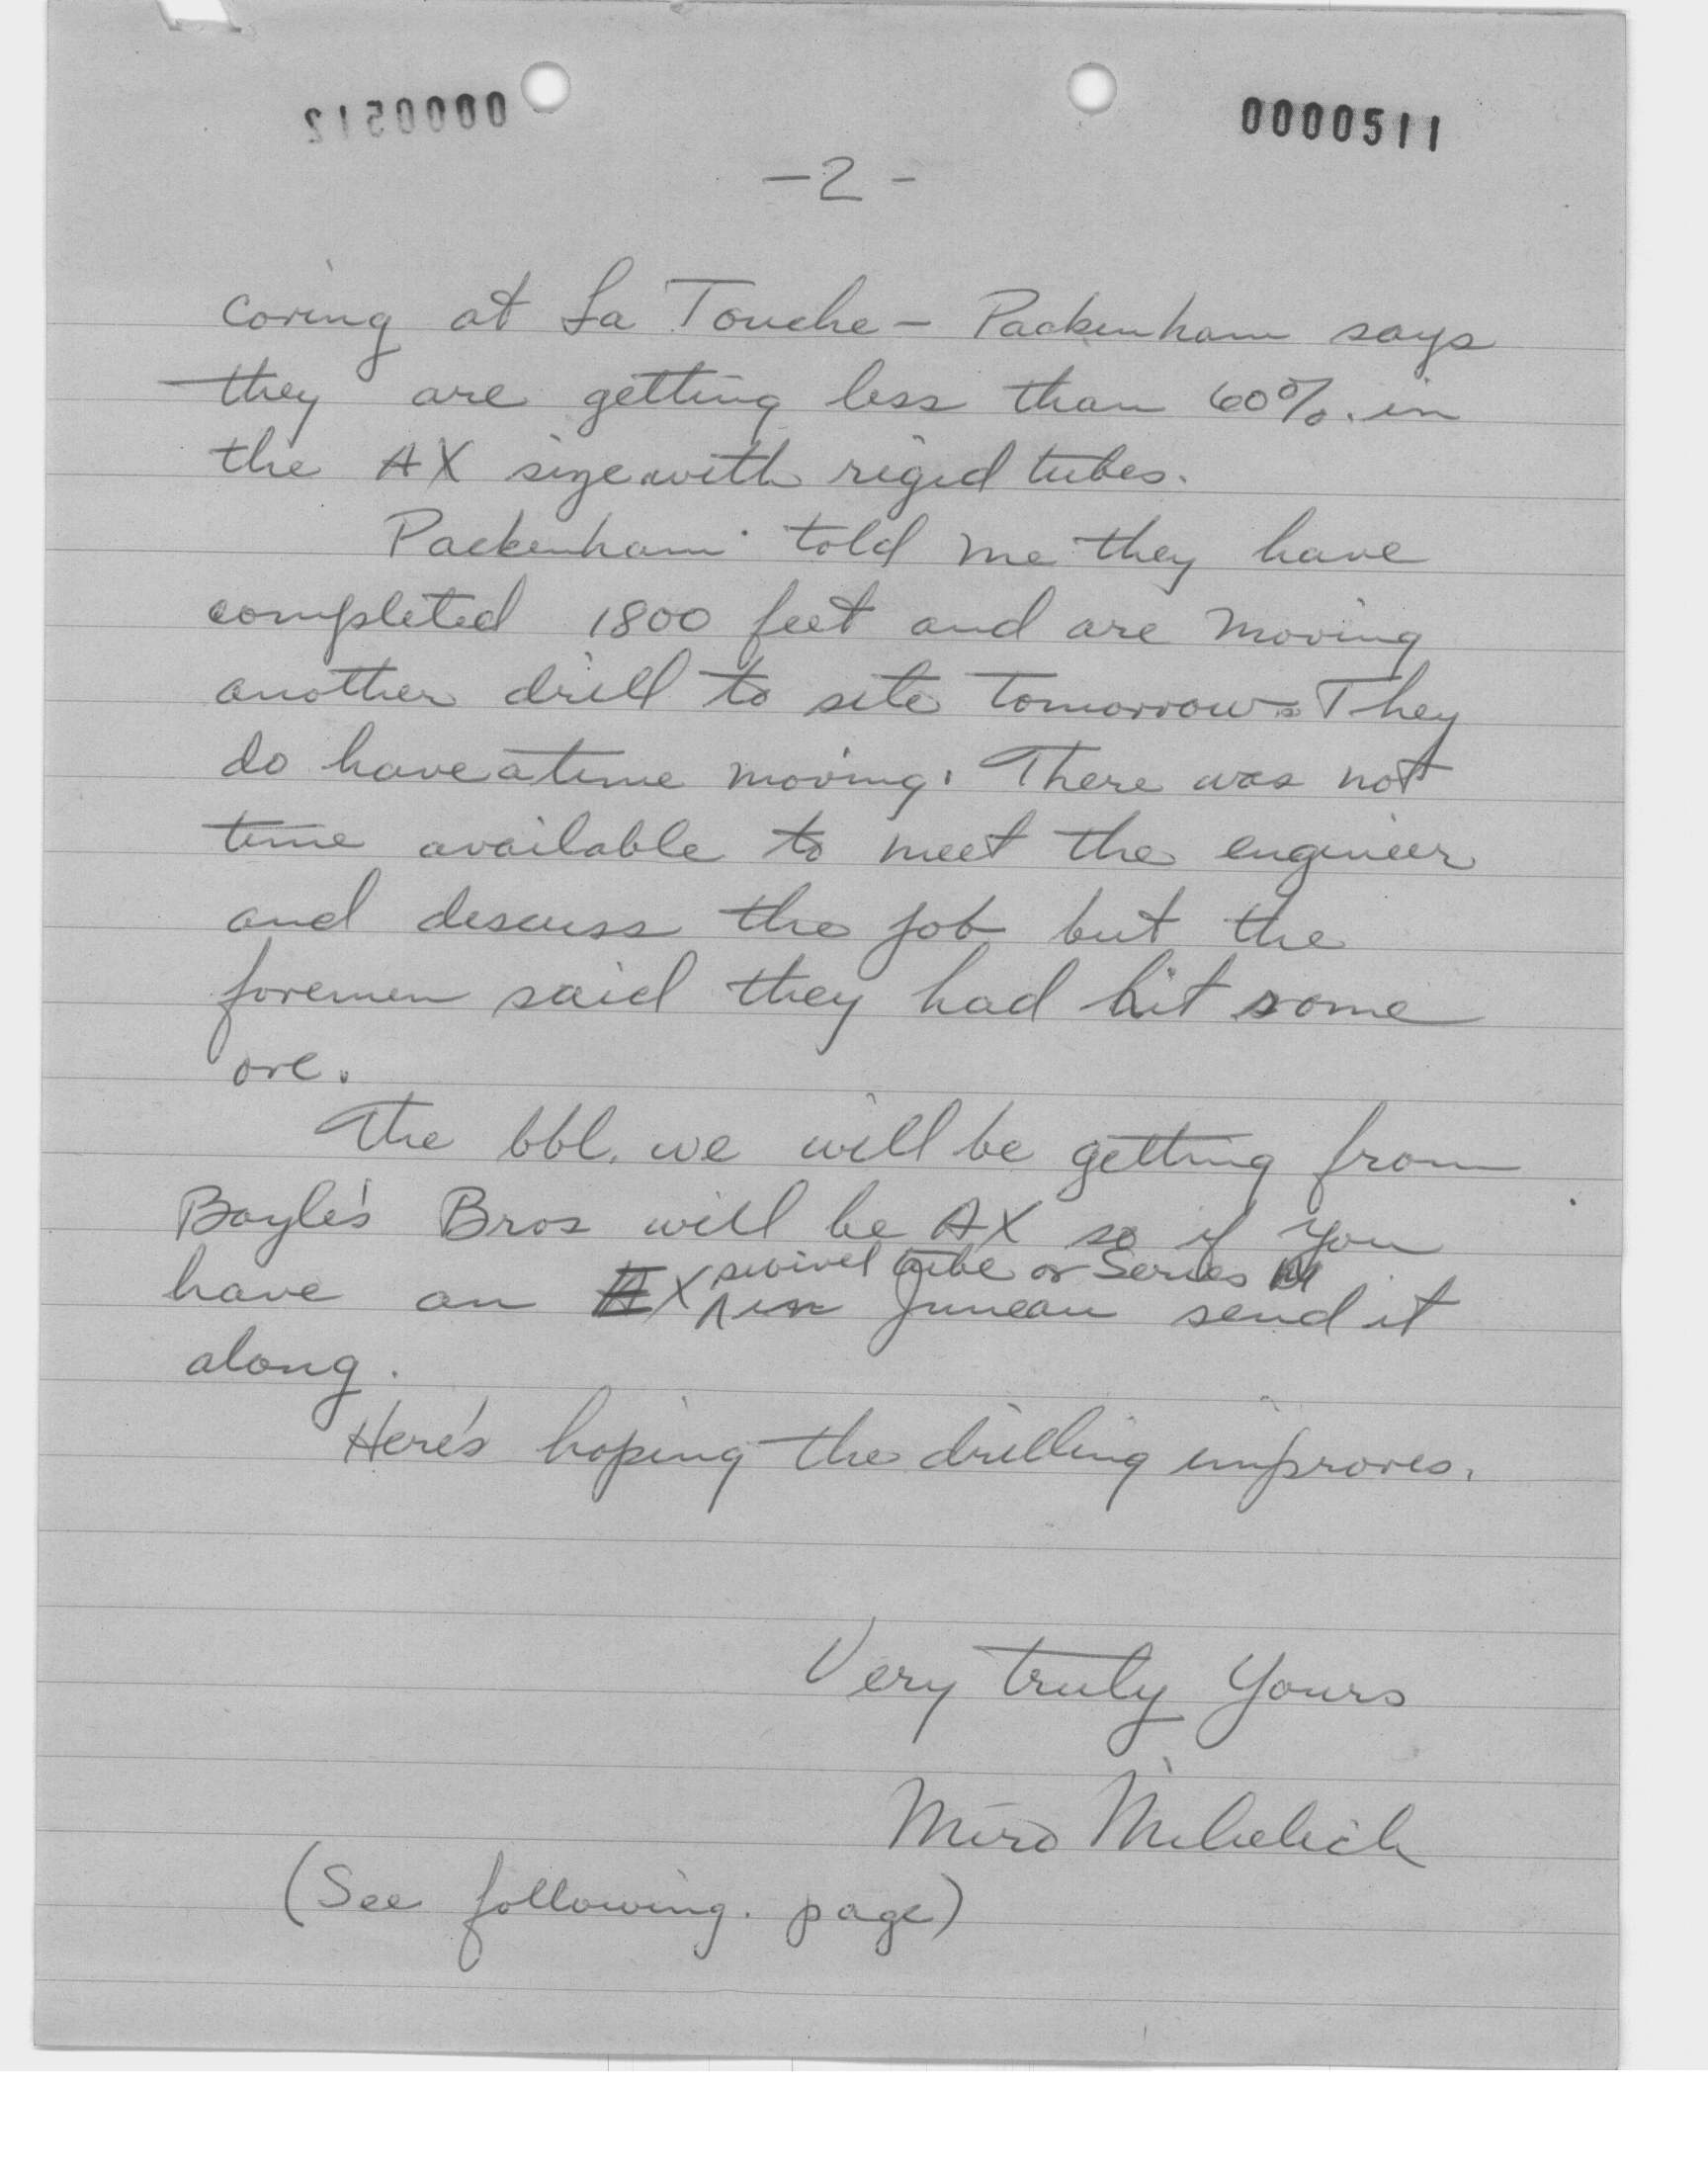 0000512
0000511
-2-
coring at La Touche - Packenham says
they are getting less than 60%. in
the AX size with rigid tubes.
Packenham told me they have
completed 1800 feet and are moving
another drill to site tomorrow. They
do have a time moving. There was not
time available to meet the engineer
and discuss the job but the
foremen said they had hit some
ore.
The bbl. we will be getting from
Boyle's Bros will be AX so if you
swivel tube or Series M
have an AX ^ in Juneau send it
along.
Here's hoping the drilling improves.
Very truly Yours
Miro Mihelich
(See following. page)